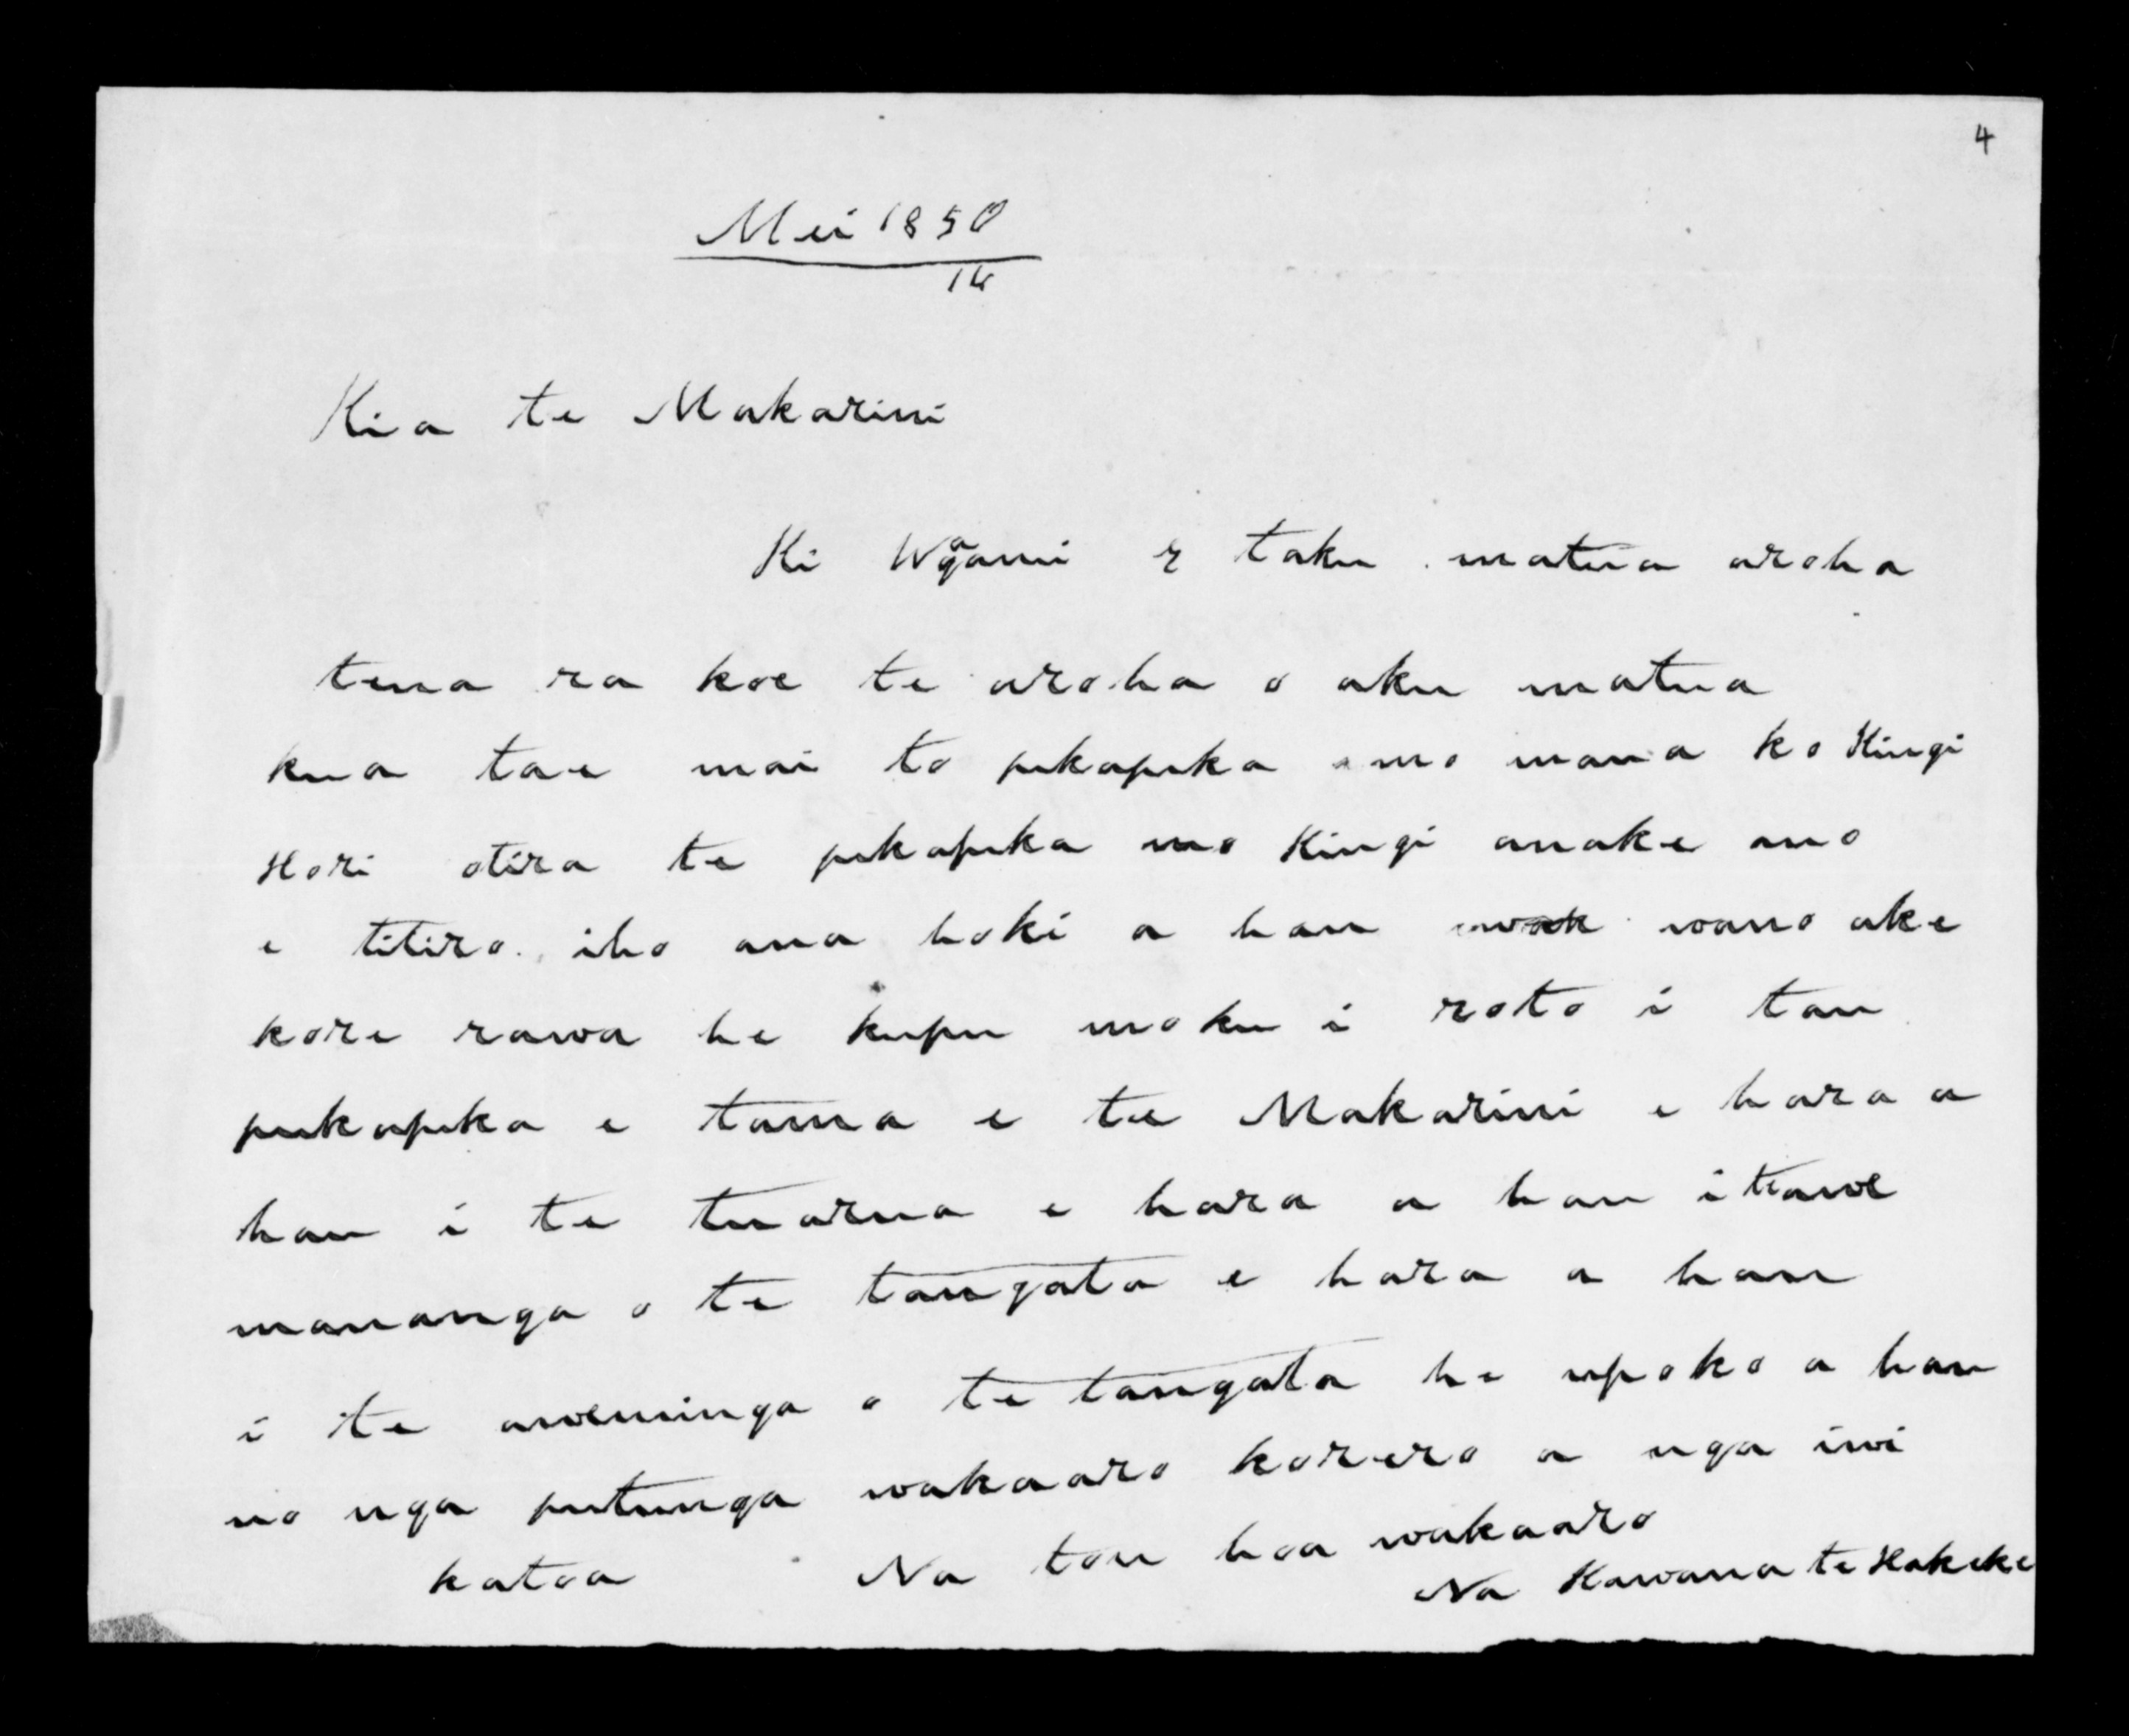 4
Mei 1850
14
Kia te Makarini
Ki Wganui e taku matua aroha
tena ra koe te aroha o aku matua
kua tae mai to pukapuka mo mana ko Kingi
Hori otira te pukapuka mo Kingi anake ano
e titiro iho ana hoki a hau wano ake
kore rawa he kupu moku i roto i tau
pukapuka e tama e te Makarini e hara a
hau i te tuarua e hara a hau i teawe
mananga o te tangata e hara a hau
i te aweminga o te tangata he upoko a hau
no nga putunga wakaaro korero a nga iwi
katoa Na tou hoa wakaaro
Na Kawana te Hakeke